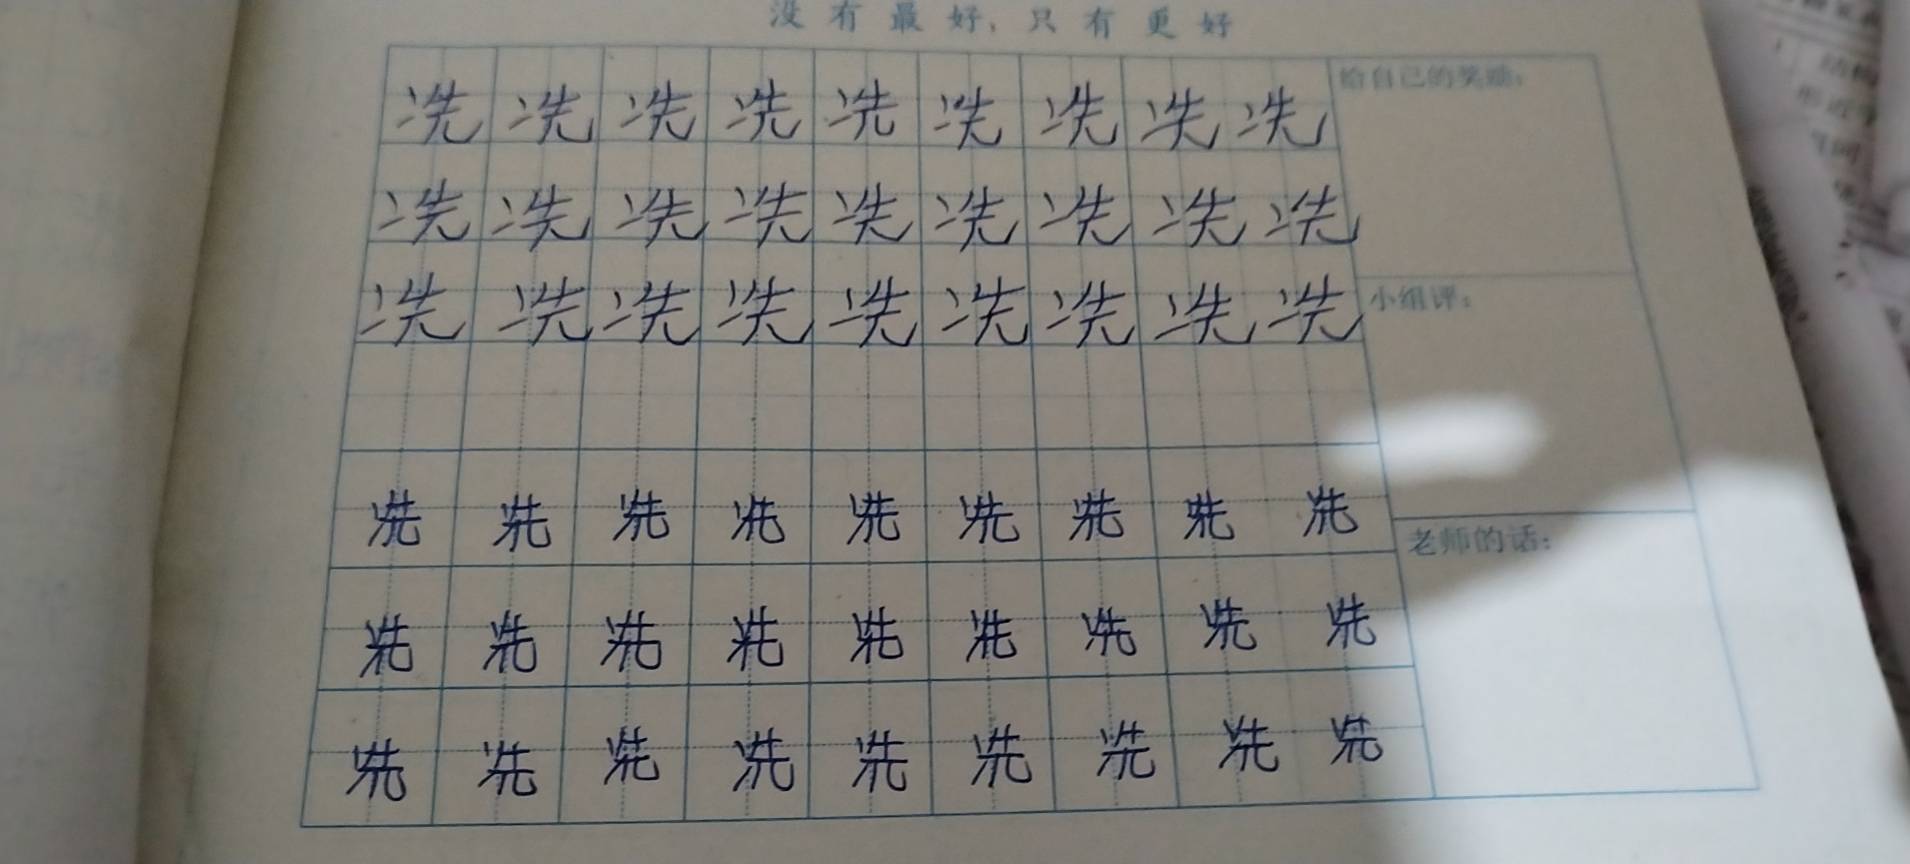 没有最好，只有更好
给自己的奖励：
洗洗洗洗洗洗洗洗洗
洗洗洗洗洗洗洗洗洗
小组评：
洗洗洗洗洗洗洗洗洗
老师的话：
洗洗洗洗洗洗洗洗洗
洗洗洗洗洗洗洗洗洗
洗洗洗洗洗洗洗洗洗